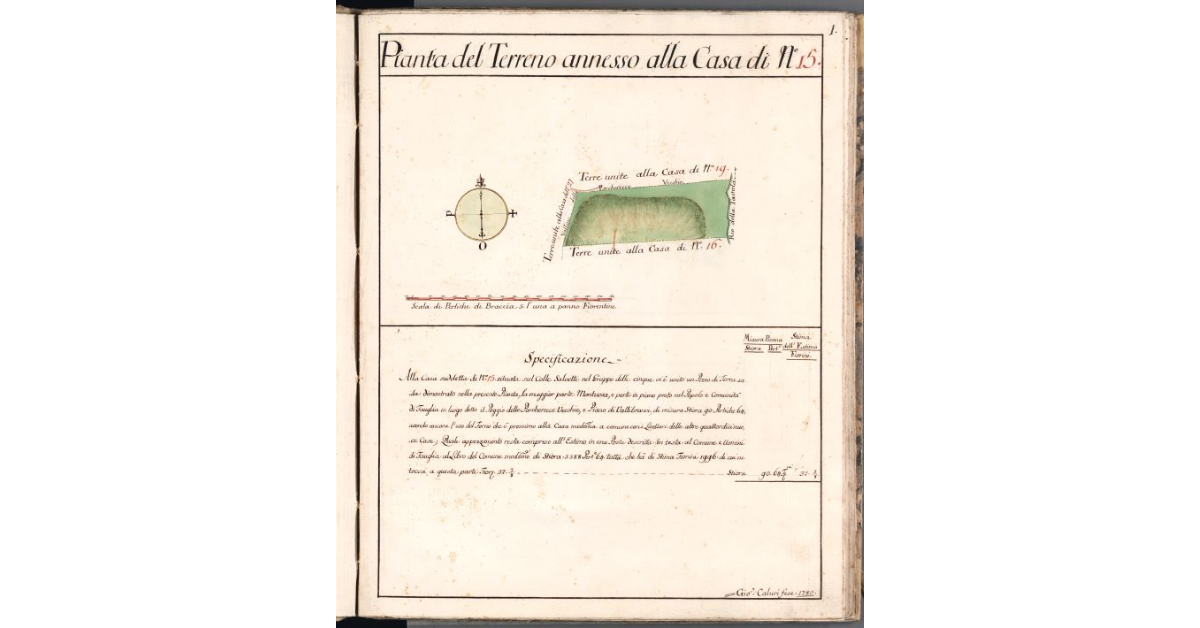 1.
Pianta del Terreno annesso alla Casa di N.º 15.
Terre unite alla Casa di N.º 19.
Vecchie
Terre unite alla Casa di N.º
Rio della
Terre unite alla Casa di N.º 16.
P
O
Scala di Pertiche di Braccia 5. l'una a panno Fiorentine
Misura Stima
Stiora Pert.e dell'Estimo
Fiorini
Specificazione
Alla Casa suddetta di N.º 15. situata nel Colle Salvetti nel Gruppo delle cinque vi è unito un Pezzo di Terra
da dimostrato nella presente Pianta, la maggior parte Montuosa, e parte in piano posto nel Popolo e Comunità
di in luogo detto il Poggio delle Vecchie, e Piano di di misura Stiora 90. Pertiche 68,
ancora l'uso del Forno che è prossimo alla Casa medesima a comune con i delle altre
Case; Quale appezzamento resta compreso all'Estimo in una Posta descritta in testa al Comune e Uomini
di al Libro del Comune di Stiora 3388 Per.e 64 tutta che hà di Stima Fiorini 1996. di cui ne
tocca a questa parte Fior. 37. ¾ Stiora 90. 68 37. ¾
Gio. Caluri fece 1780.